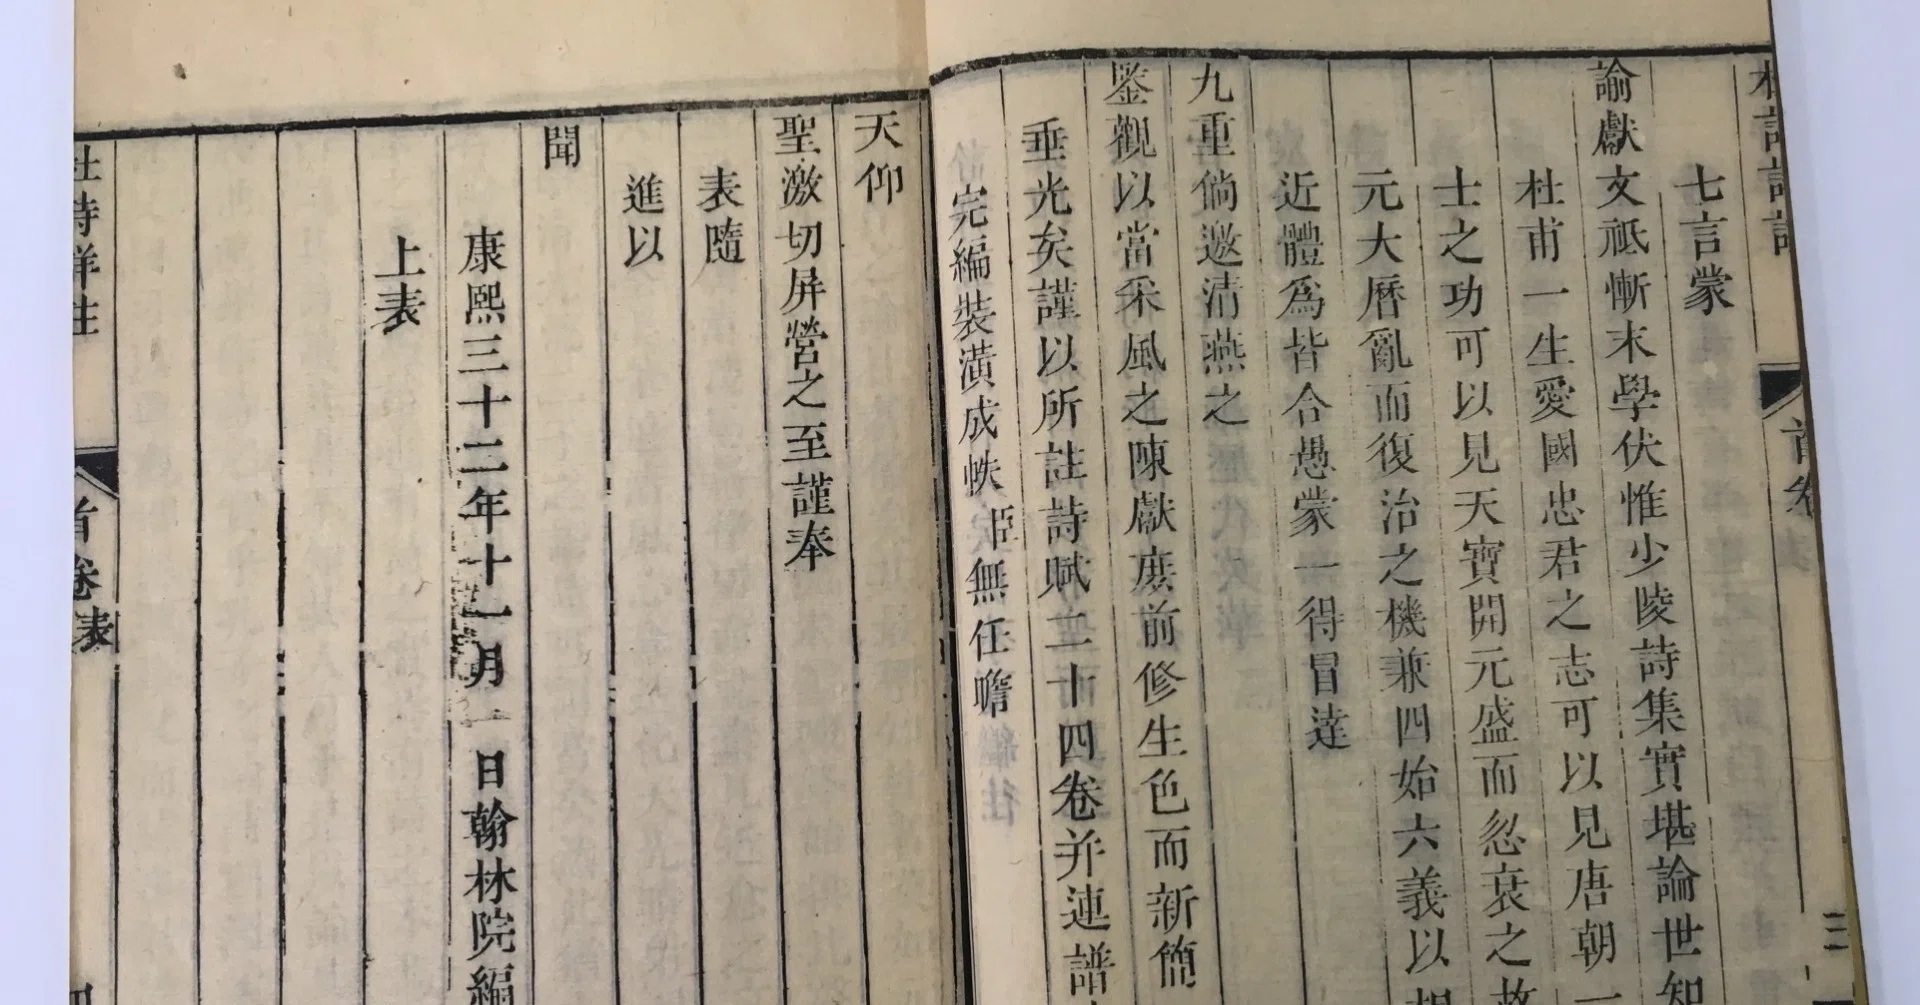 七言蒙
諭獻文祗慚末學伏惟少陵詩集實堪論世知
杜甫一生愛國忠君之志可以見唐朝一
士之功可以見天寶開元盛而忽衰之故
元大曆亂而復治之機兼四始六義以
近體爲皆合愚蒙一得冒達
九重倘邀清燕之
鑒觀以當采風之陳獻庻前修生色而新簡
垂光矣謹以所註詩賦二十四卷并連譜
完編裝潢成帙臣無任瞻
天仰
聖激切屏營之至謹奉
表隨
進以
聞
康熙三十二年十一月一日翰林院編
上表
杜詩詳註
首卷表